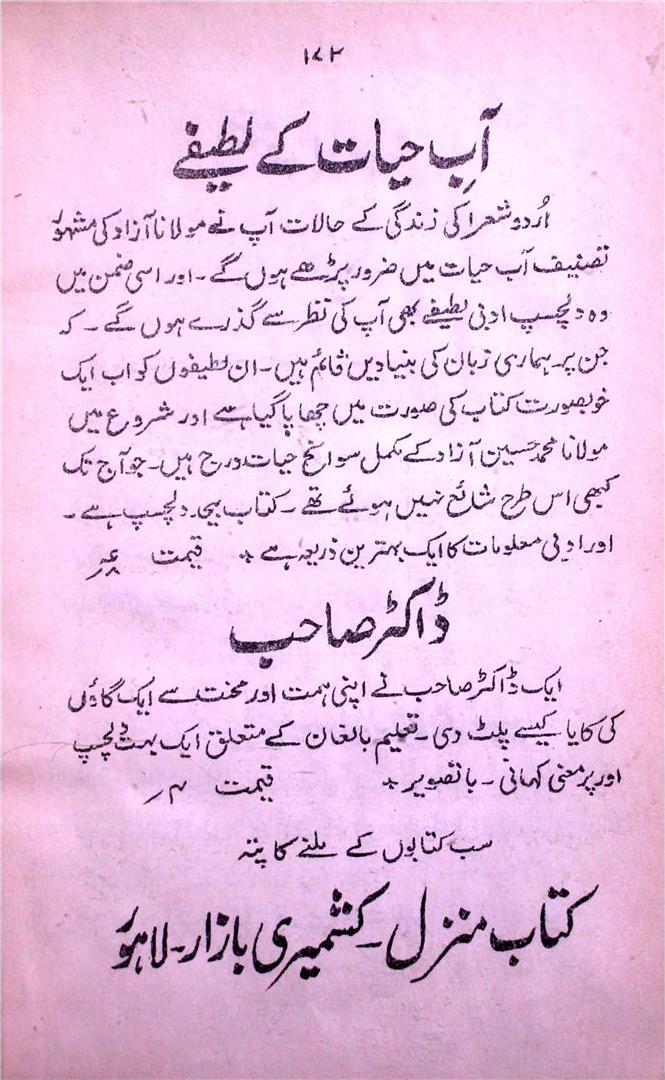 ۱۷۲
آبِ حیات کے لطیفے
اُردو شعرا کی زندگی کے حالات آپ نے مولانا آزاد کی مشہور
تصنیف آب حیات میں ضرور پڑھے ہوں گے۔ اور اسی ضمن میں
وہ دلچسپ ادبی لطیفے بھی آپ کی نظر سے گذرے ہوں گے۔ کہ
جن پر ہماری زبان کی بنیادیں قائم ہیں۔ ان لطیفوں کو اب ایک
خوبصورت کتاب کی صورت میں چھاپا گیا ہے اور شروع میں
مولانا محمد حسین آزاد کے مکمل سوانح حیات درج ہیں۔ جو آج تک
کبھی اس طرح شائع نہیں ہوئے تھے۔ کتاب بیحد دلچسپ ہے۔
اور ادبی معلومات کا ایک بہترین ذریعہ ہے + قیمت
ڈاکٹر صاحب
ایک ڈاکٹر صاحب نے اپنی ہمت اور محنت سے ایک گاؤں
کی کایا کیسے پلٹ دی۔ تعلیم بالغان کے متعلق ایک بہت دلچسپ
اور پر معنی کہانی۔ با تصویر + قیمت ۴ر
سب کتابوں کے ملنے کا پتہ
کتاب منزل۔ کشمیری بازار۔ لاہور